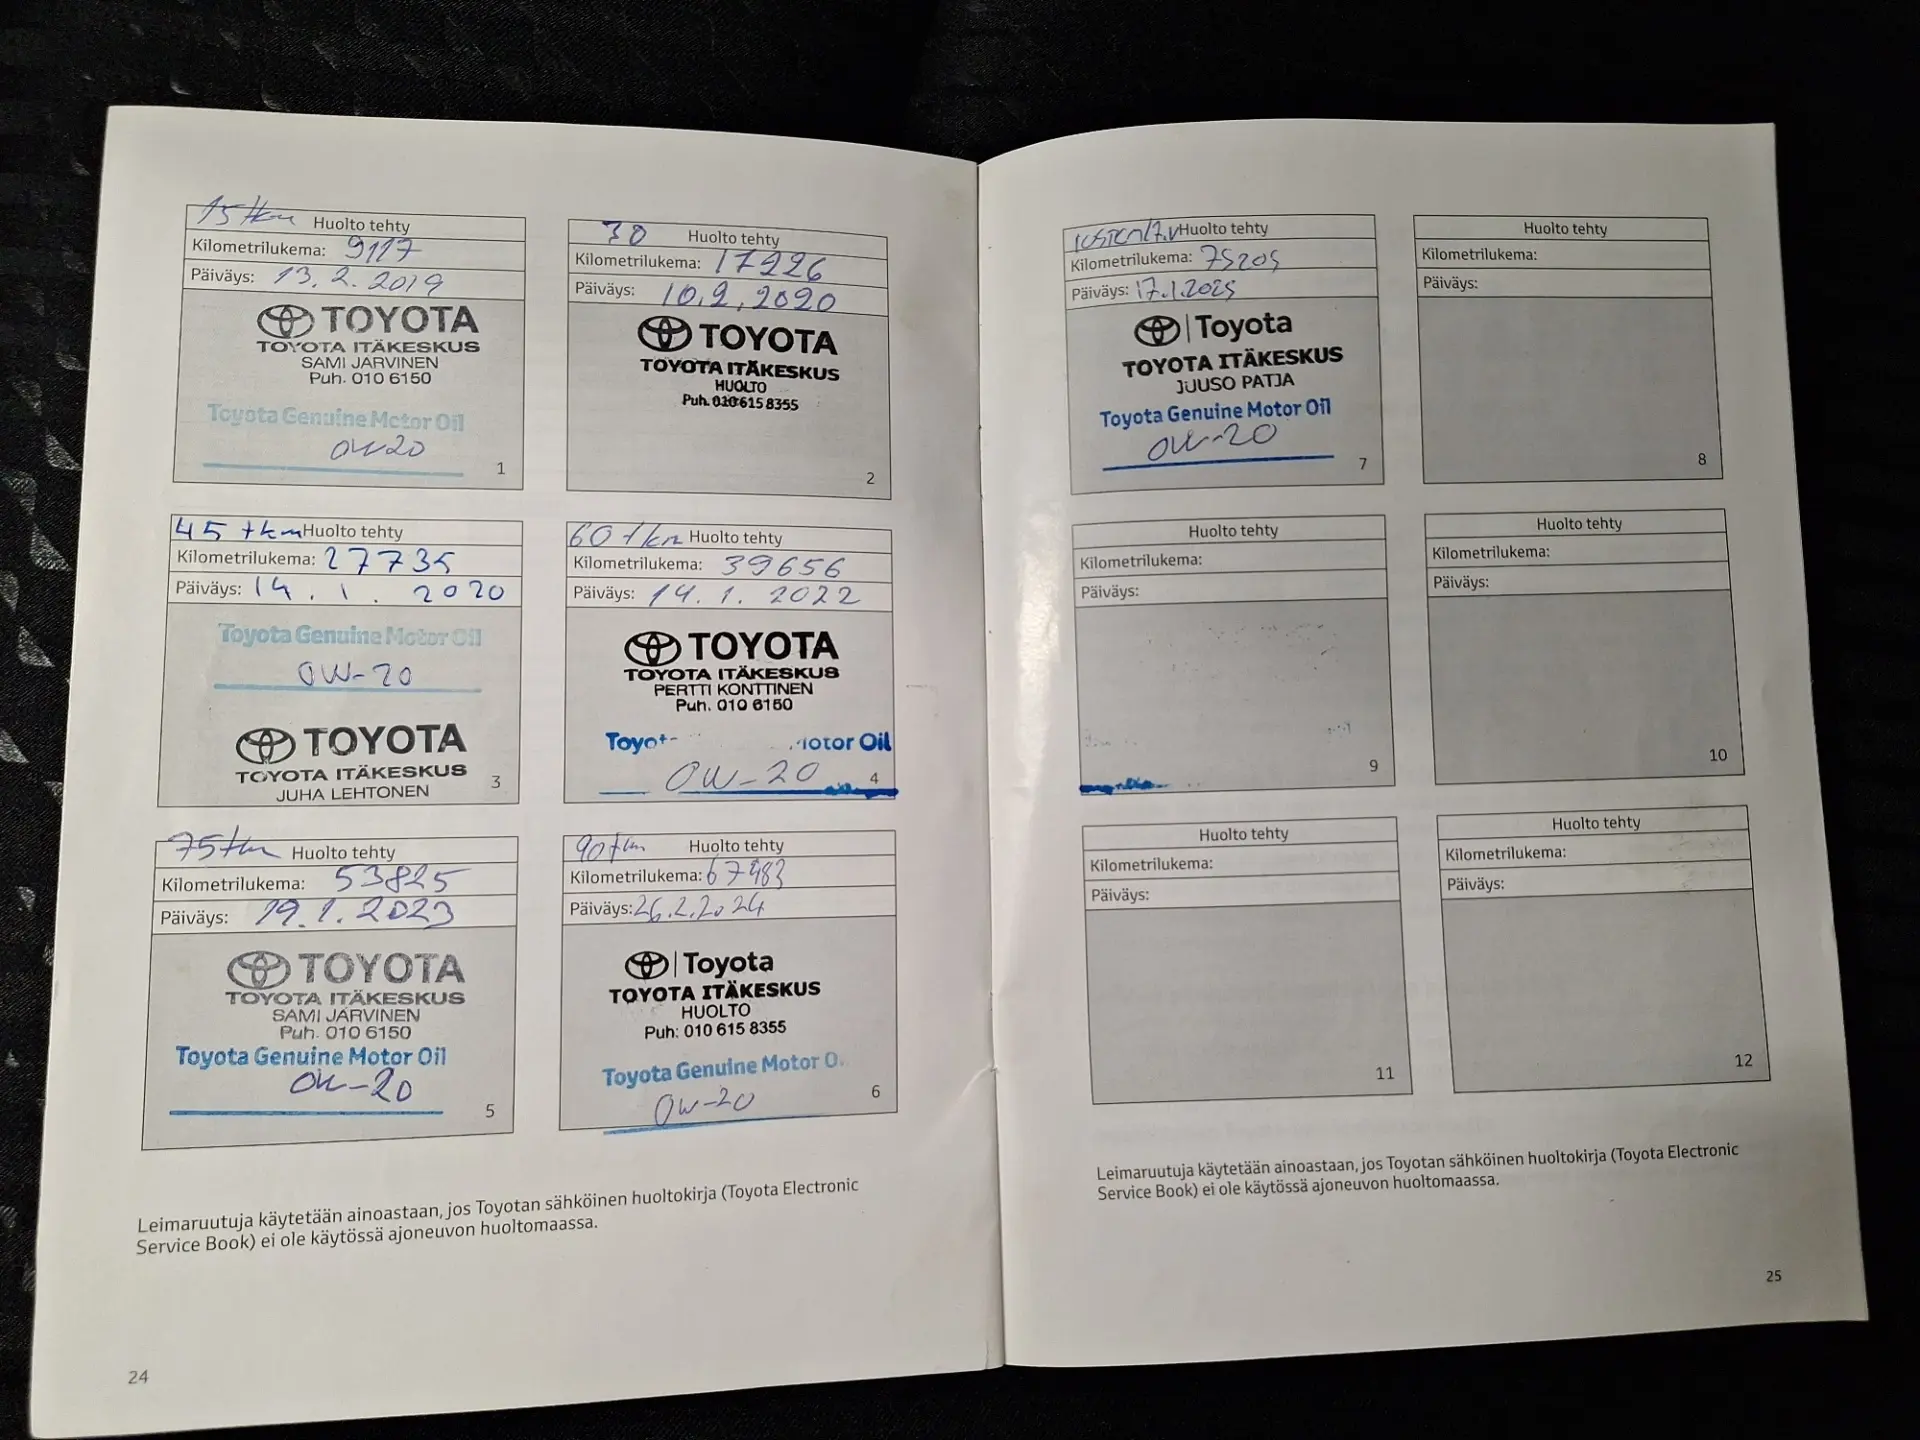 15 tkm Huolto tehty
Kilometrilukema: 9117
Päiväys: 13.2.2019
TOYOTA
TOYOTA ITÄKESKUS
SAMI JÄRVINEN
Puh. 010 6150
Toyota Genuine Motor Oil
0W-20
1
30 Huolto tehty
Kilometrilukema: 17226
Päiväys: 10.2.2020
TOYOTA
TOYOTA ITÄKESKUS
HUOLTO
Puh. 010 615 8355
2
45 tkm Huolto tehty
Kilometrilukema: 27735
Päiväys: 14.1.2020
Toyota Genuine Motor Oil
0W-20
TOYOTA
TOYOTA ITÄKESKUS
JUHA LEHTONEN
3
60 tkm Huolto tehty
Kilometrilukema: 39656
Päiväys: 14.1.2022
TOYOTA
TOYOTA ITÄKESKUS
PERTTI KONTTINEN
Puh. 010 6150
Motor Oil
0W-20
4
75 tkm Huolto tehty
Kilometrilukema: 53825
Päiväys: 19.1.2023
TOYOTA
TOYOTA ITÄKESKUS
SAMI JÄRVINEN
Puh. 010 6150
Toyota Genuine Motor Oil
0W-20
5
90 tkm Huolto tehty
Kilometrilukema: 67483
Päiväys: 26.2.2024
Toyota
TOYOTA ITÄKESKUS
HUOLTO
Puh: 010 615 8355
Toyota Genuine Motor
0W-20
6
Leimaruutuja käytetään ainoastaan, jos Toyotan sähköinen huoltokirja (Toyota Electronic
Service Book) ei ole käytössä ajoneuvon huoltomaassa.
24
Huolto tehty
Kilometrilukema: 75205
Päiväys: 17.1.2025
Toyota
TOYOTA ITÄKESKUS
JUUSO PATJA
Toyota Genuine Motor Oil
0W-20
7
Huolto tehty
Kilometrilukema:
Päiväys:
8
Huolto tehty
Kilometrilukema:
Päiväys:
9
Huolto tehty
Kilometrilukema:
Päiväys:
10
Huolto tehty
Kilometrilukema:
Päiväys:
11
Huolto tehty
Kilometrilukema:
Päiväys:
12
Leimaruutuja käytetään ainoastaan, jos Toyotan sähköinen huoltokirja (Toyota Electronic
Service Book) ei ole käytössä ajoneuvon huoltomaassa.
25